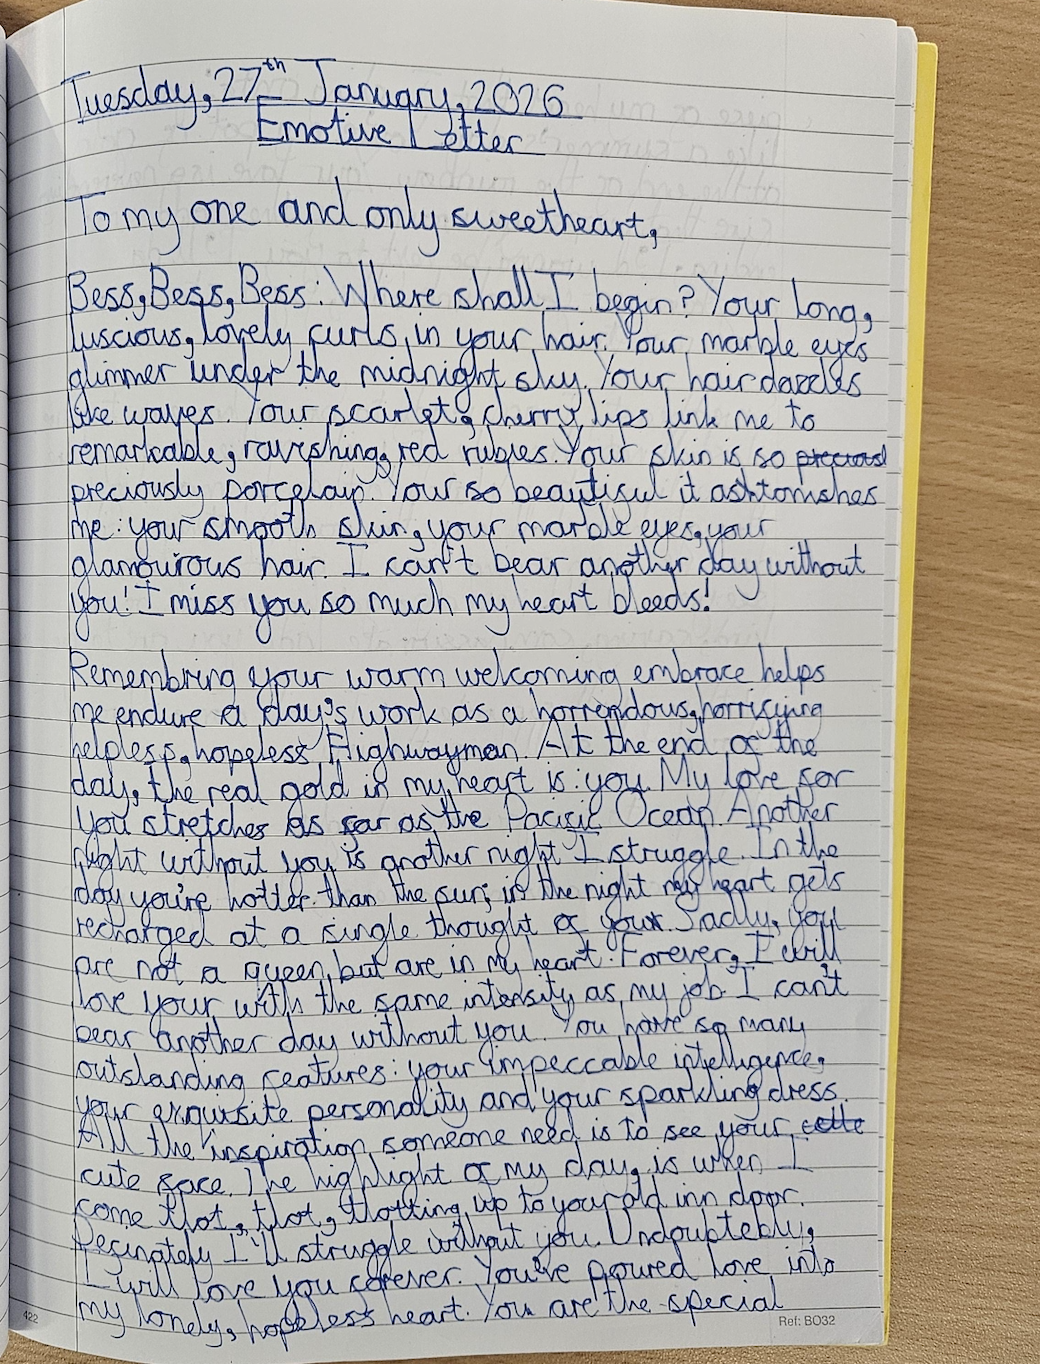 Tuesday, 27th January, 2026
Emotive Letter
To my one and only sweetheart,
Bess, Bess, Bess: Where shall I begin? Your long,
luscious, lovely curls, in your hair. Your marble eyes
glimmer under the midnight sky. Your hair dazzles
like waves. Your scarlet, cherry lips link me to
remarkable, ravishing, red rubies. Your skin is so
preciously porcelain. Your so beautiful it ashtonishes
me: your smooth skin, your marble eyes, your
glamourous hair. I can't bear another day without
you! I miss you so much my heart bleeds!
Remembring your warm welcoming embrace helps
me endure a day's work as a horrendous, horrifying
helpless, hopeless Highwayman. At the end of the
day, the real gold in my heart is: you. My love for
you stretches as far as the Pacific Ocean. Another
night without you is another night I struggle. In the
day you're hotter than the sun; in the night my heart gets
recharged at a single thought of your. Sadly, you
are not a queen, but are in my heart. Forever, I will
love your with the same intensity as my job. I can't
bear another day without you. You have so many
outstanding features: your impeccable intelligence,
your exquisite personality and your sparkling dress.
All the inspiration someone need is to see your
cute face. The highlight of my day, is when I
come tlot, tlot, tlotting up to your old inn door.
Definately I'll struggle without you. Undoubtebly,
I will love you forever. You've poured love into
my lonely, hopeless heart. You are the special
422
Ref: BO32